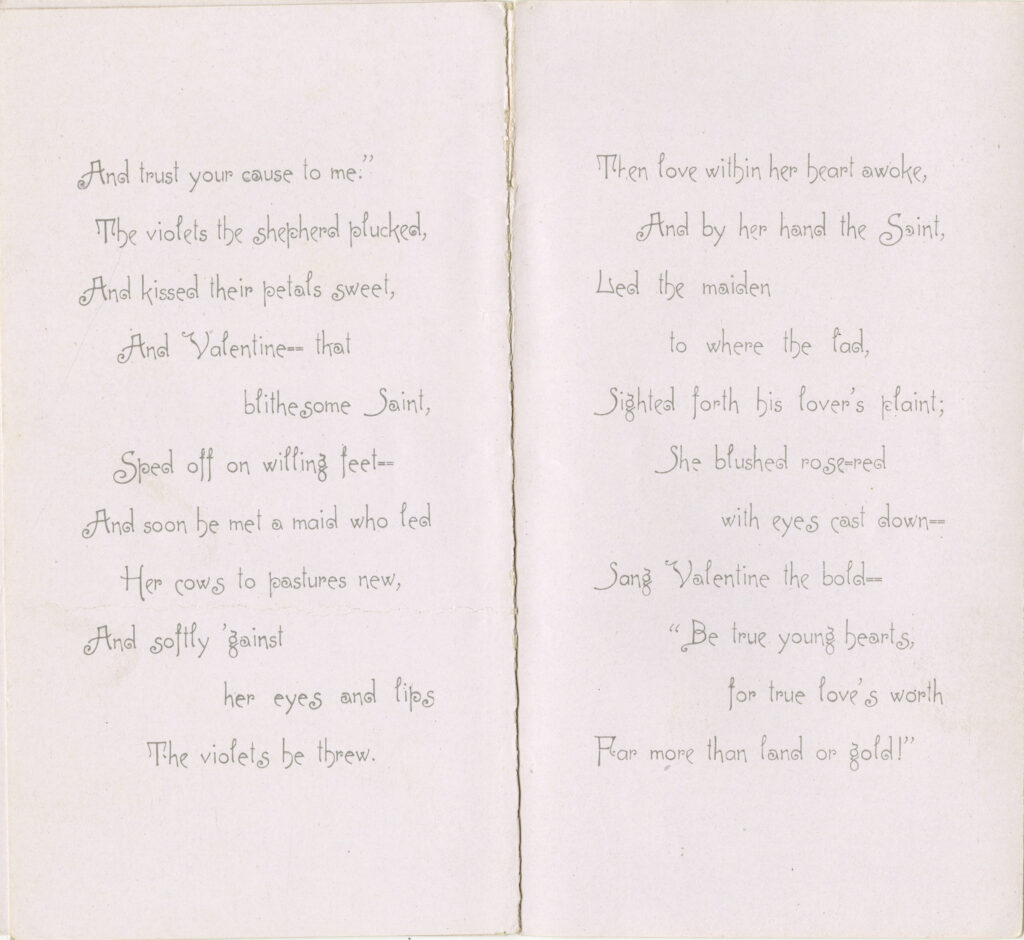 And trust your cause to me."
The violets the shepherd plucked,
And kissed their petals sweet,
And Valentine-- that
blithesome Saint,
Sped off on willing feet--
And soon he met a maid who led
Her cows to pastures new,
And softly 'gainst
her eyes and lips
The violets he threw.
Then love within her heart awoke,
And by her hand the Saint,
Led the maiden
to where the lad,
Sighted forth his lover's plaint;
She blushed rose-red
with eyes cast down--
Sang Valentine the bold--
"Be true young hearts,
for true love's worth
Far more than land or gold!"